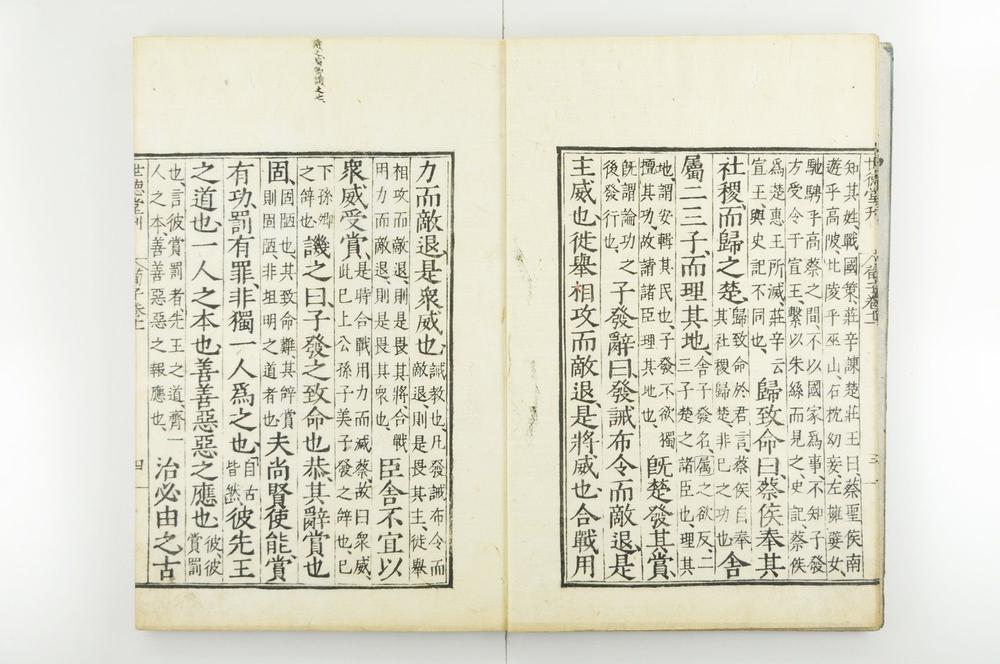 世德堂刊 荀子卷十一 三
知其姓、戰國策、莊辛諫楚莊王曰蔡聖侯南
遊乎高陂北陵乎巫山石枕幼妾左擁嬖女、
馳騁乎高蔡之間、不以國家爲事、不知子發
方受令于宣王、繫以朱絲而見之史記、蔡侯
爲楚惠王所滅、莊辛云
宣王、與史記不同也、
歸致命曰蔡侯奉其
社稷、而歸之楚、
歸致命於君言、蔡侯自奉
其社稷歸楚、非己之功也
舍
屬二三子、而理其地、
舍子發名、屬之欲反、二
三子楚之諸臣也、理其
地、謂安輯其民也、子發不欲獨
擅其功、故請諸臣理其地也、
旣楚發其賞、
旣謂論功之
後、發行也、
子發辭曰、發誡布令而敵退、是
主威也、徙舉相攻而敵退、是將威也、合戰用
力而敵退、是衆威也、
誡教也、凡發誡布令而
敵退、則是畏其主、徙舉
相攻而敵退、則是畏其將合戰
用力而敵退、則是畏其衆也、
臣舍不宜以
衆威受賞、
是時合戰用力而滅蔡、故曰衆威、
此已上公孫子美子發之辭也、已
下孫卿
之辭也
譏之曰、子發之致命也恭、其辭賞也
固、
固陋也、其致命難其辭賞
則固陋、非坦明之道者也
夫尚賢使能、賞
有功、罰有罪、非獨一人爲之也、
自古
皆然、
彼先王
之道也、一人之本也、善善惡惡之應也、
彼、彼
賞罰
也、言彼賞罰者、先王之道、齊一
人之本、善善惡惡之報應也、
治必由之、古
世德堂刊 荀子卷十一 四